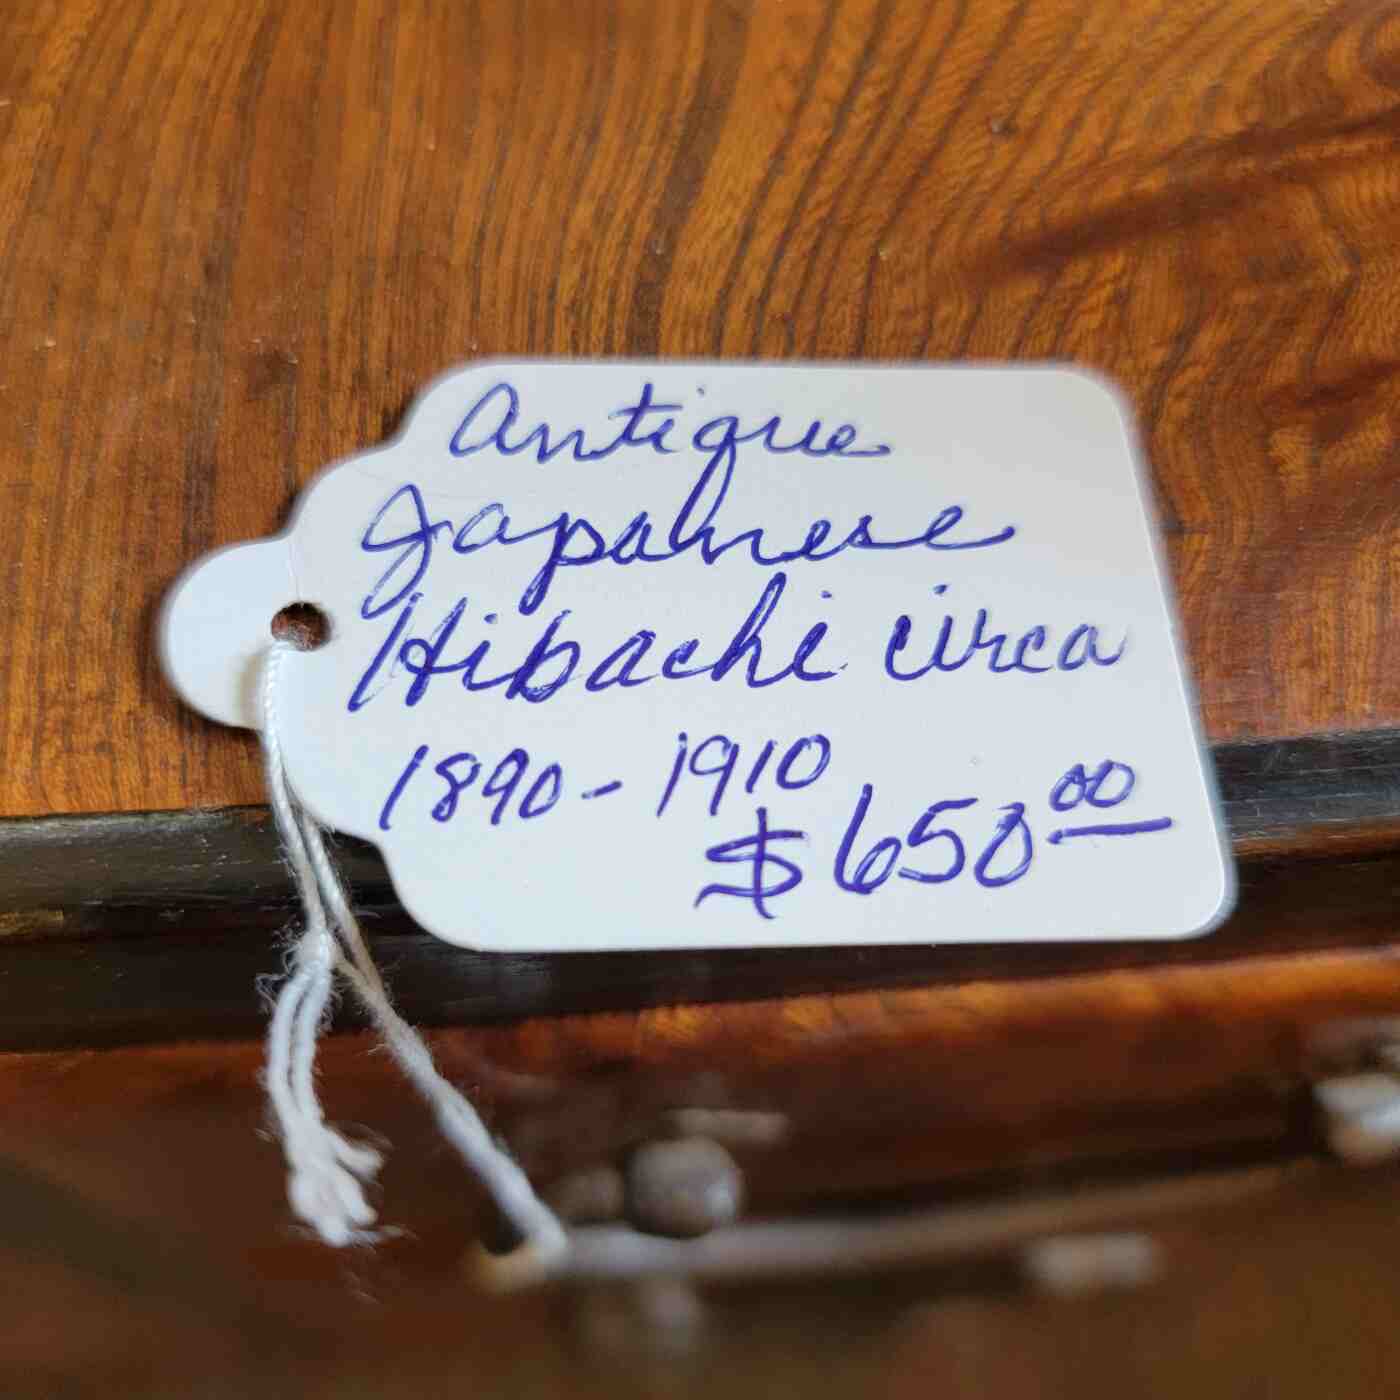 Antique
Japanese
Hibachi circa
1890 - 1910
$650.00